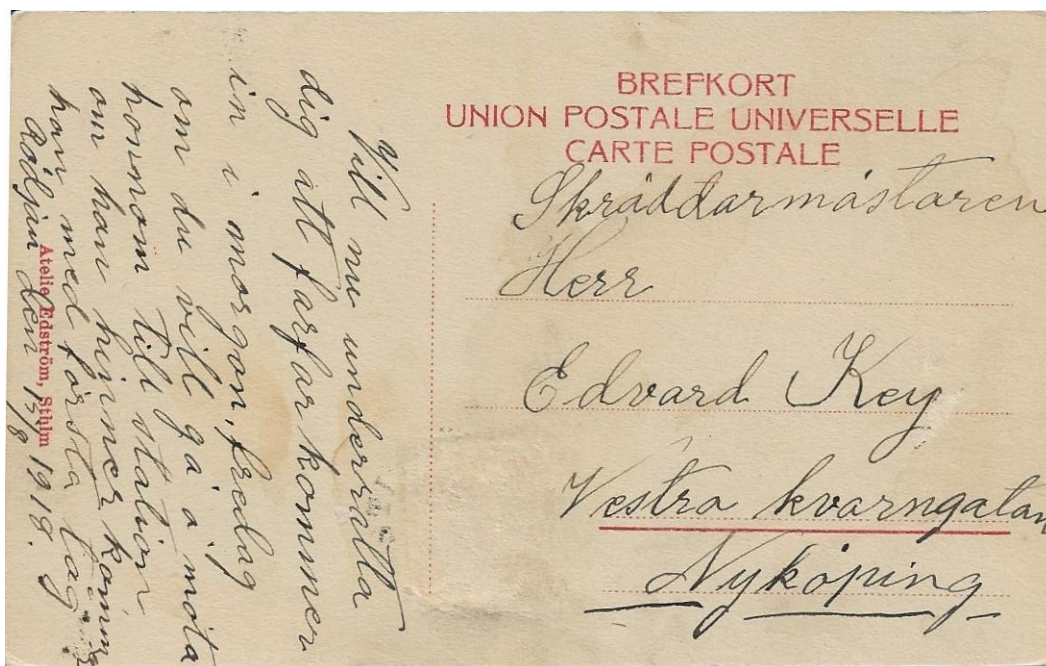 BREFKORT
UNION POSTALE UNIVERSELLE
CARTE POSTALE
Skräddarmästaren
Herr
Edvard Key
Vestra kvarngatan
Nyköping
Vill nu underrätta
dig att farfar kommer
in i morgon, fredag
om du vill gå å möta
honom till station
om han hinner kommer
han med första tåg
Rådjan den 15/8 1918.
Atelie Edström, Sthlm